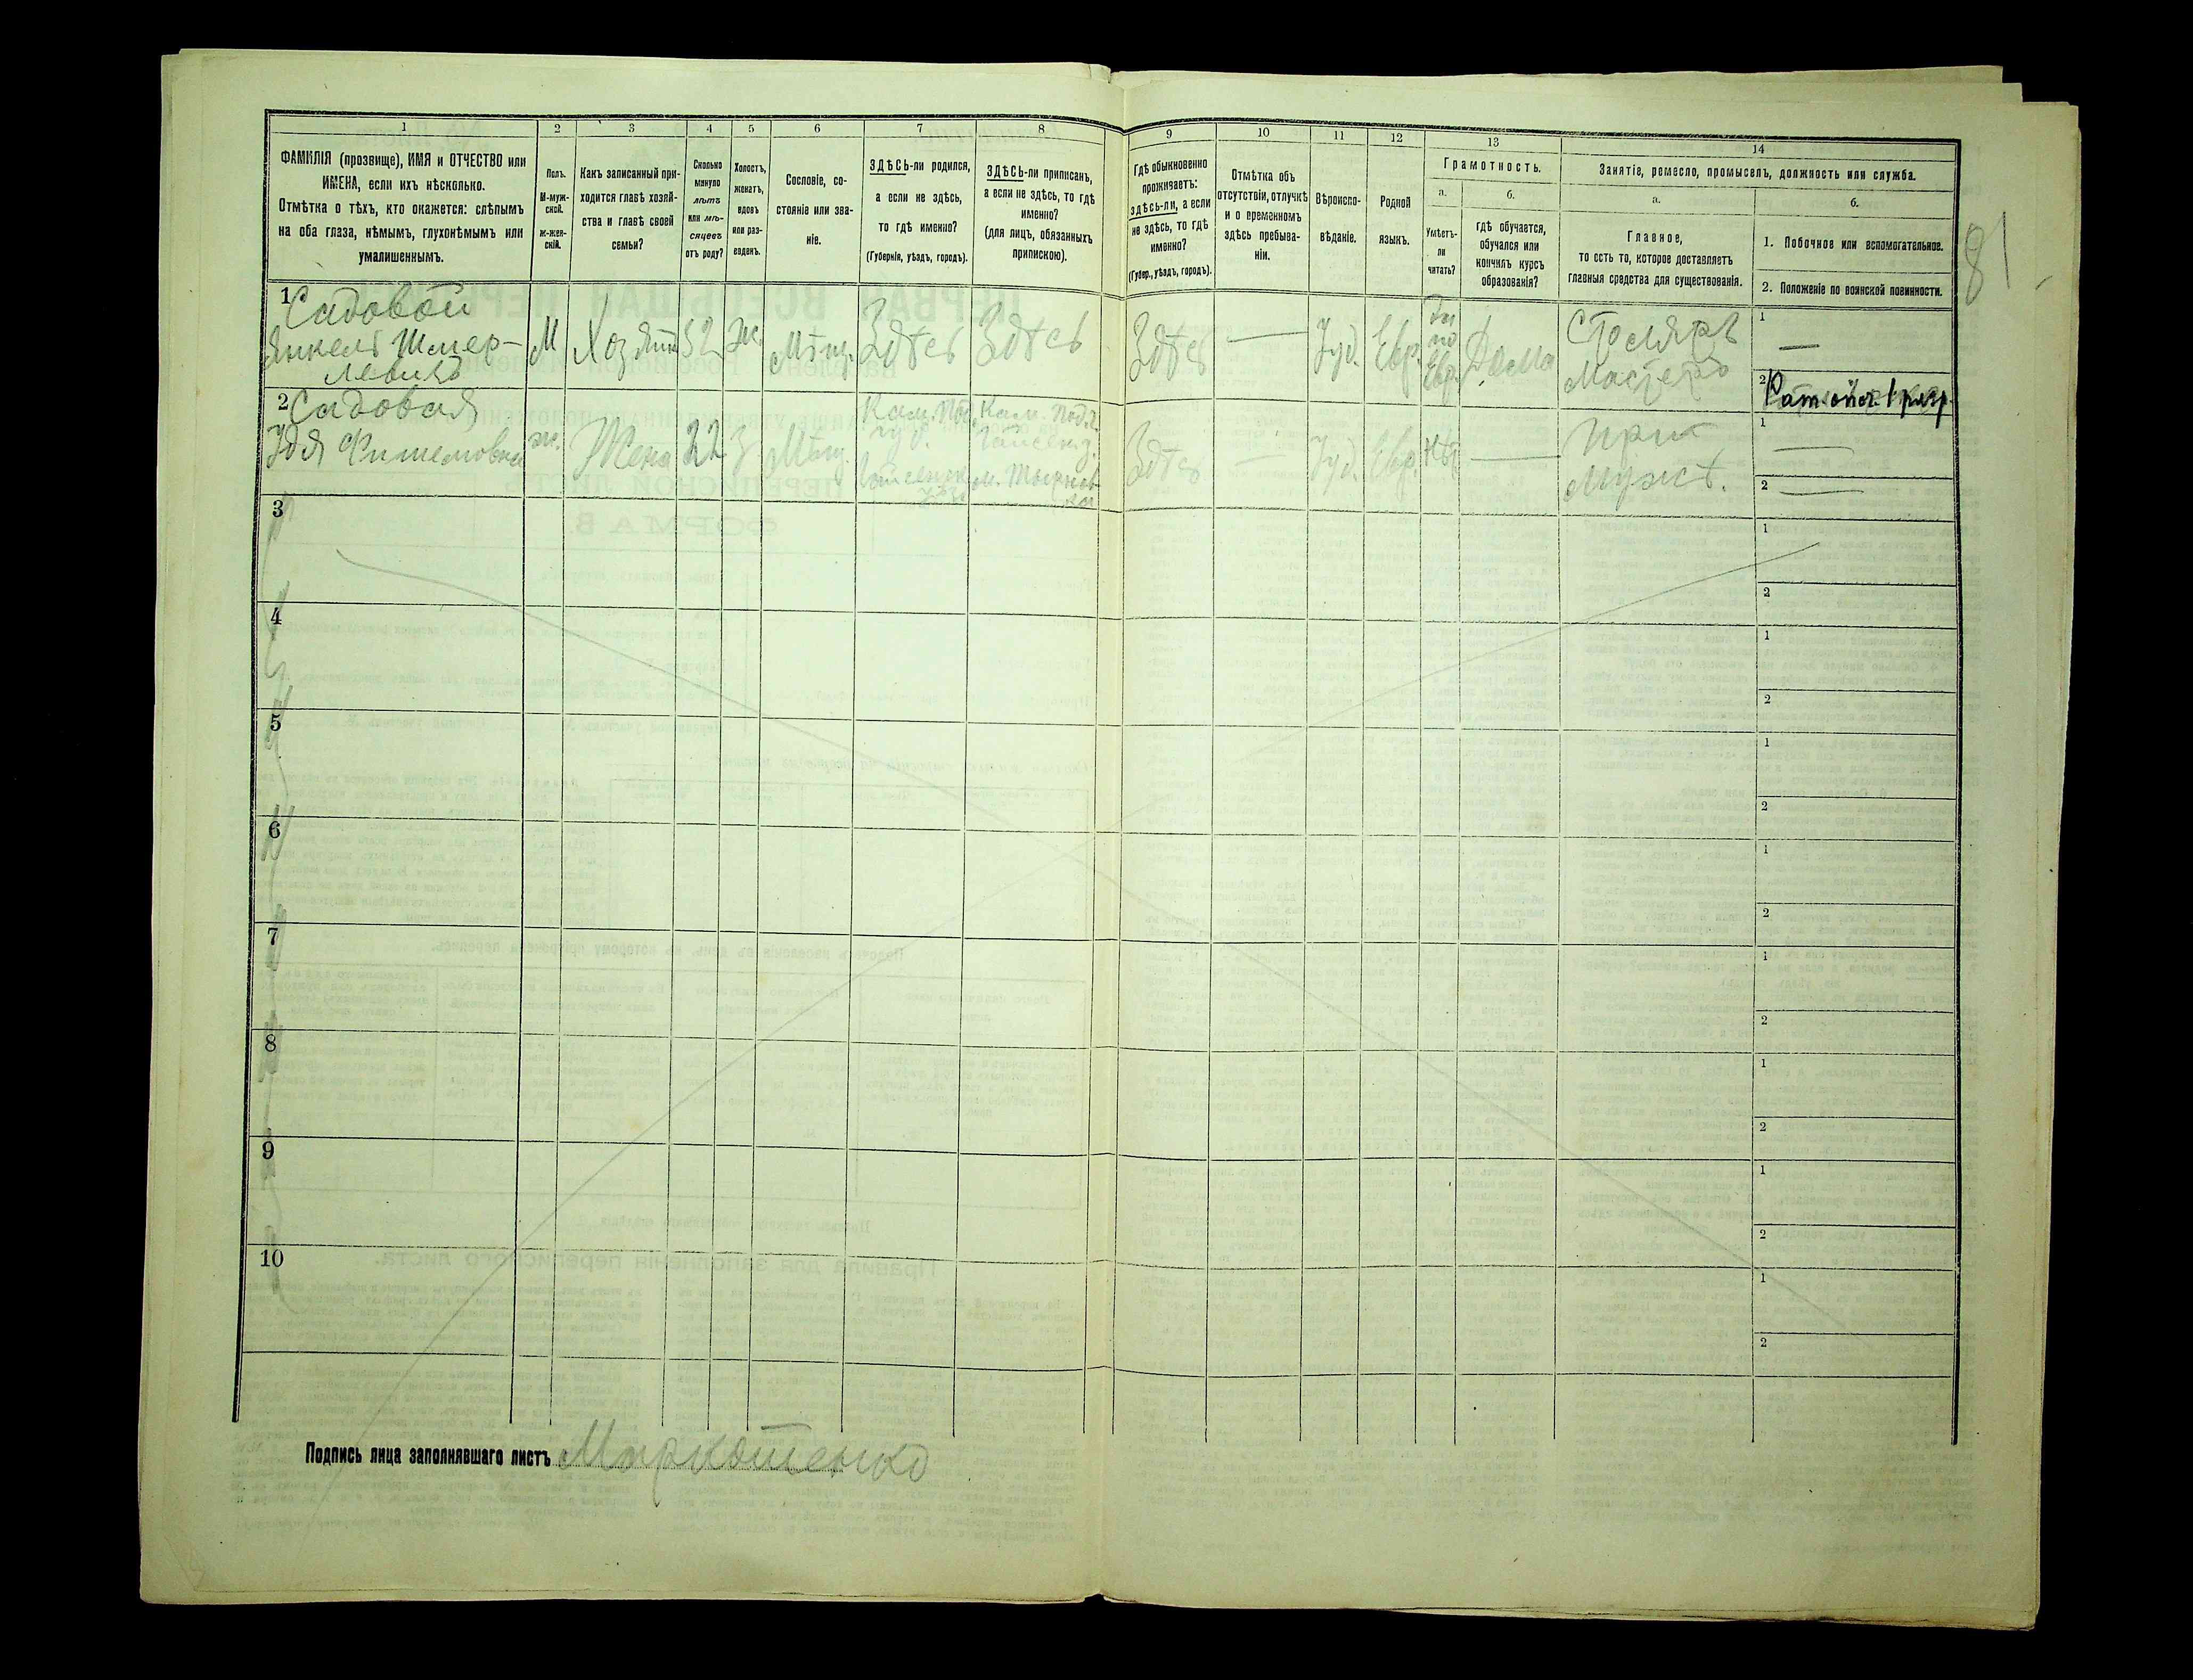 1
2
3
4
5
6
7
8
9
10
11
12
13
14
ФАМИЛІЯ (прозвище), ИМЯ и ОТЧЕСТВО или
ИМЕНА, если ихъ нѣсколько.
Отмѣтка о тѣхъ, кто окажется: слѣпымъ
на оба глаза, нѣмымъ, глухонѣмымъ или
умалишеннымъ.
Полъ.
М-муж-
ской.
ж-жен-
скій.
Какъ записанный при-
ходится главѣ хозяй-
ства и главѣ своей
семьи?
Сколько
минуло
лѣтъ
или мѣ-
сяцевъ
отъ роду?
Холостъ,
женатъ,
вдовъ
или раз-
веденъ.
Сословіе, со-
стояніе или зва-
ніе.
ЗДѢСЬ-ли родился,
а если не здѣсь,
то гдѣ именно?
(Губернія, уѣздъ, городъ).
ЗДѢСЬ-ли приписанъ,
а если не здѣсь, то гдѣ
именно?
(для лицъ, обязанныхъ
припискою).
Гдѣ обыкновенно
проживаетъ:
здѣсь-ли, а если
не здѣсь, то гдѣ
именно?
(Губер., уѣздъ, городъ).
Отмѣтка объ
отсутствіи, отлучкѣ
и о временномъ
здѣсь пребыва-
ніи.
Вѣроиспо-
вѣданіе.
Родной
языкъ.
Грамотность.
а.
Умѣетъ-
ли
читать?
б.
гдѣ обучается,
обучался или
кончилъ курсъ
образованія?
Занятіе, ремесло, промыселъ, должность или служба.
а.
Главное,
то есть то, которое доставляетъ
главныя средства для существованія.
б.
1. Побочное или вспомогательное.
2. Положеніе по воинской повинности.
81
1 Садовой
Янкель Шмер-
левичъ
М
Хозяинъ
32
Ж.
Мѣщ.
Здѣсь
Здѣсь
Здѣсь
—
Іуд.
Евр.
Да
по
Евр.
Дома
Столяръ
Мастеръ
1
—
2 Рат. опол. 1 разр.
2 Садовая
Удя Фишелевна
ж.
Жена
22
З
Мѣщ.
Кам. Под.
губ.
Гайсенск
уѣз.
Кам. Под. г.
Гайсен. у.
Здѣсь
—
Іуд.
Евр.
Нѣт
—
При
Мужѣ.
1
—
2
—
3
1
2
4
1
2
5
1
2
6
1
2
7
1
2
8
1
2
9
1
2
10
1
2
Подпись лица заполнявшаго листъ Маркотенко